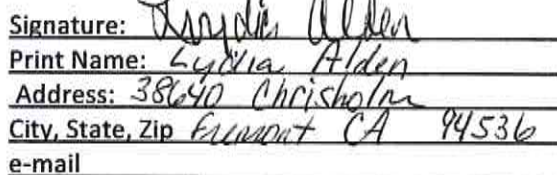 Signature: Lydia Alden
Print Name: Lydia Alden
Address: 38640 Chrisholm
City, State, Zip Fremont CA 94536
e-mail